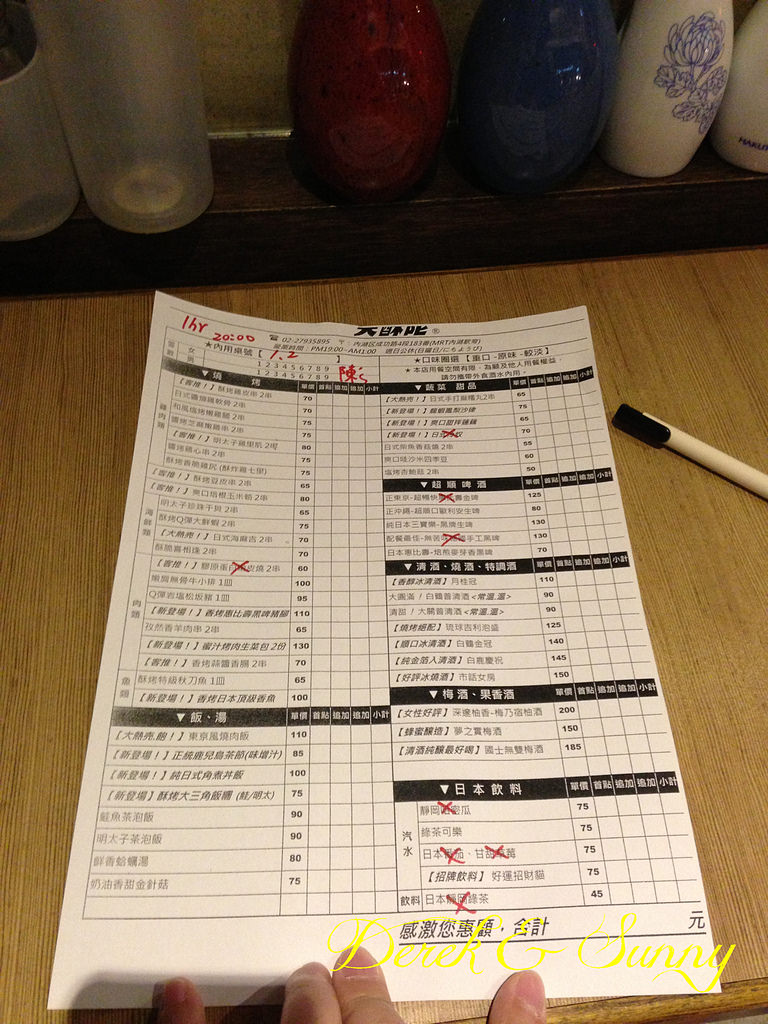 1hr 20:00
笑酥陀®
☎ 02-27935895 〒:內湖區成功路4段183巷(MRT內湖駅旁)
PM19:00-AM1:00 週日公休(日曜日/にちようび)
★內用桌號【 1.2 】
女 1 2 3 4 5 6 7 8 9
男 1 2 3 4 5 6 7 8 9
陳
★口味圈選【重口-原味-較淡】
★本店用餐空間有限,為顧及他人用餐權益,
請勿攜帶外食酒水內用。
▼燒 烤 單價 首點 追加 追加 小計
雞肉類
【客推!】酥烤雞皮串 2串 70
日式醬燒雞軟骨 2串 70
和風塩烤嫩雞腿 2串 75
醬烤芝麻嫩雞串 2串 75
【客推!】明太子雞里肌 2串 80
醬烤雞心串 2串 75
酥烤香脆雞尻(酥炸雞七里) 75
【客推!】酥烤豆皮串 2串 75
【客推!】爽口培根玉米筍 2串 80
海鮮類
明太子珍珠干貝 2串
酥烤Q彈大鮮蝦 2串 75
【大熱売!】日式海麻吉 2串 70
酥脆喜相逢 2串 70
肉類
【客推!】膠原蛋白 皮燒 2串 60
嫩肩無骨牛小排 1皿 100
Q彈岩塩松坂豬 1皿 95
【新登場!】香烤惠比壽黑啤豬腳 110
孜然香羊肉串 2串 65
【新登場!】蜜汁烤肉生菜包 2份 130
【客推!】香烤蒜醬香腸 2串 70
魚類
酥烤特級秋刀魚 1皿 65
【新登場!】香烤日本頂級香魚 100
▼飯、湯 單價 首點 追加 追加 小計
【大熱売.飽!】東京風燒肉飯 110
【新登場!】正統鹿兒島茶節(味增汁) 85
【新登場!】純日式角煮丼飯 100
【新登場】酥烤大三角飯糰 (鮭/明太) 75
鮭魚茶泡飯 90
明太子茶泡飯 90
鮮香蛤蠣湯 80
奶油香甜金針菇 75
▼蔬菜 甜品 單價 首點 追加 追加 小計
【大熱売!】日式手打麻糬丸2串 65
【新登場!】龍蝦鳳梨沙律 75
【新登場!】爽口甜拌蓮藕 65
【新登場!】日式 70
日式柴魚香菇燒 2串 55
爽口哇沙米四季豆 60
塩烤杏鮑菇 2串 50
▼超順啤酒 單價 首點 追加 追加 小計
正東京-超暢快 壽金啤 125
正沖繩-超順口歐利安生啤 80
純日本三寶樂-黑牌生啤 130
配餐最佳-無苦味 手工黑啤 130
日本惠比壽-焙煎麥芽香黑啤 70
▼清酒、燒酒、特調酒 單價 首點 追加 追加 小計
【香醇冰清酒】月桂冠 110
大圓滿!白鶴普清酒<常溫,溫> 90
清甜!大關普清酒<常溫,溫> 90
【燒烤絕配】琉球吉利泡盛 125
【順口冰清酒】白鶴金冠 140
【純金箔入清酒】白鹿慶祝 145
【好評冰燒酒】市話女房 150
▼梅酒、果香酒 單價 首點 追加 追加 小計
【女性好評】深邃柚香-梅乃宿柚酒 200
【蜂蜜釀造】夢之實梅酒 150
【清酒純釀最好喝】國士無雙梅酒 185
▼日本飲料 單價 首點 追加 追加 小計
汽水
靜岡哈密瓜 75
綠茶可樂 75
日本番茄、甘甜草莓 75
【招牌飲料】好運招財貓 75
飲料 日本靜岡綠茶 45
感激您惠顧,合計 元
HAKU
Derek & Sunny